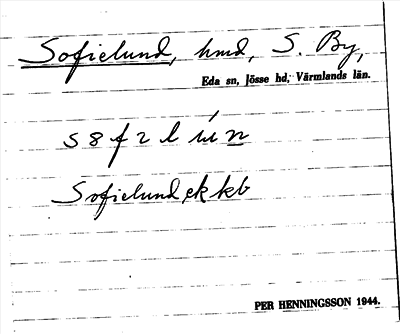 Sofielund, hmd, S. By,
Eda sn, Jösse hd, Värmlands län.
Sofielund ek kb
PER HENNINGSSON 1944.